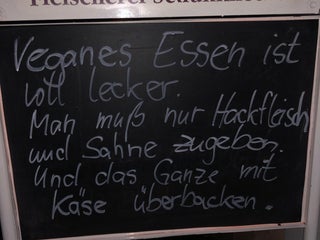 Veganes Essen ist
voll lecker.
Man muß nur Hackfleisch
und Sahne zugeben.
Und das Ganze mit
Käse überbacken.